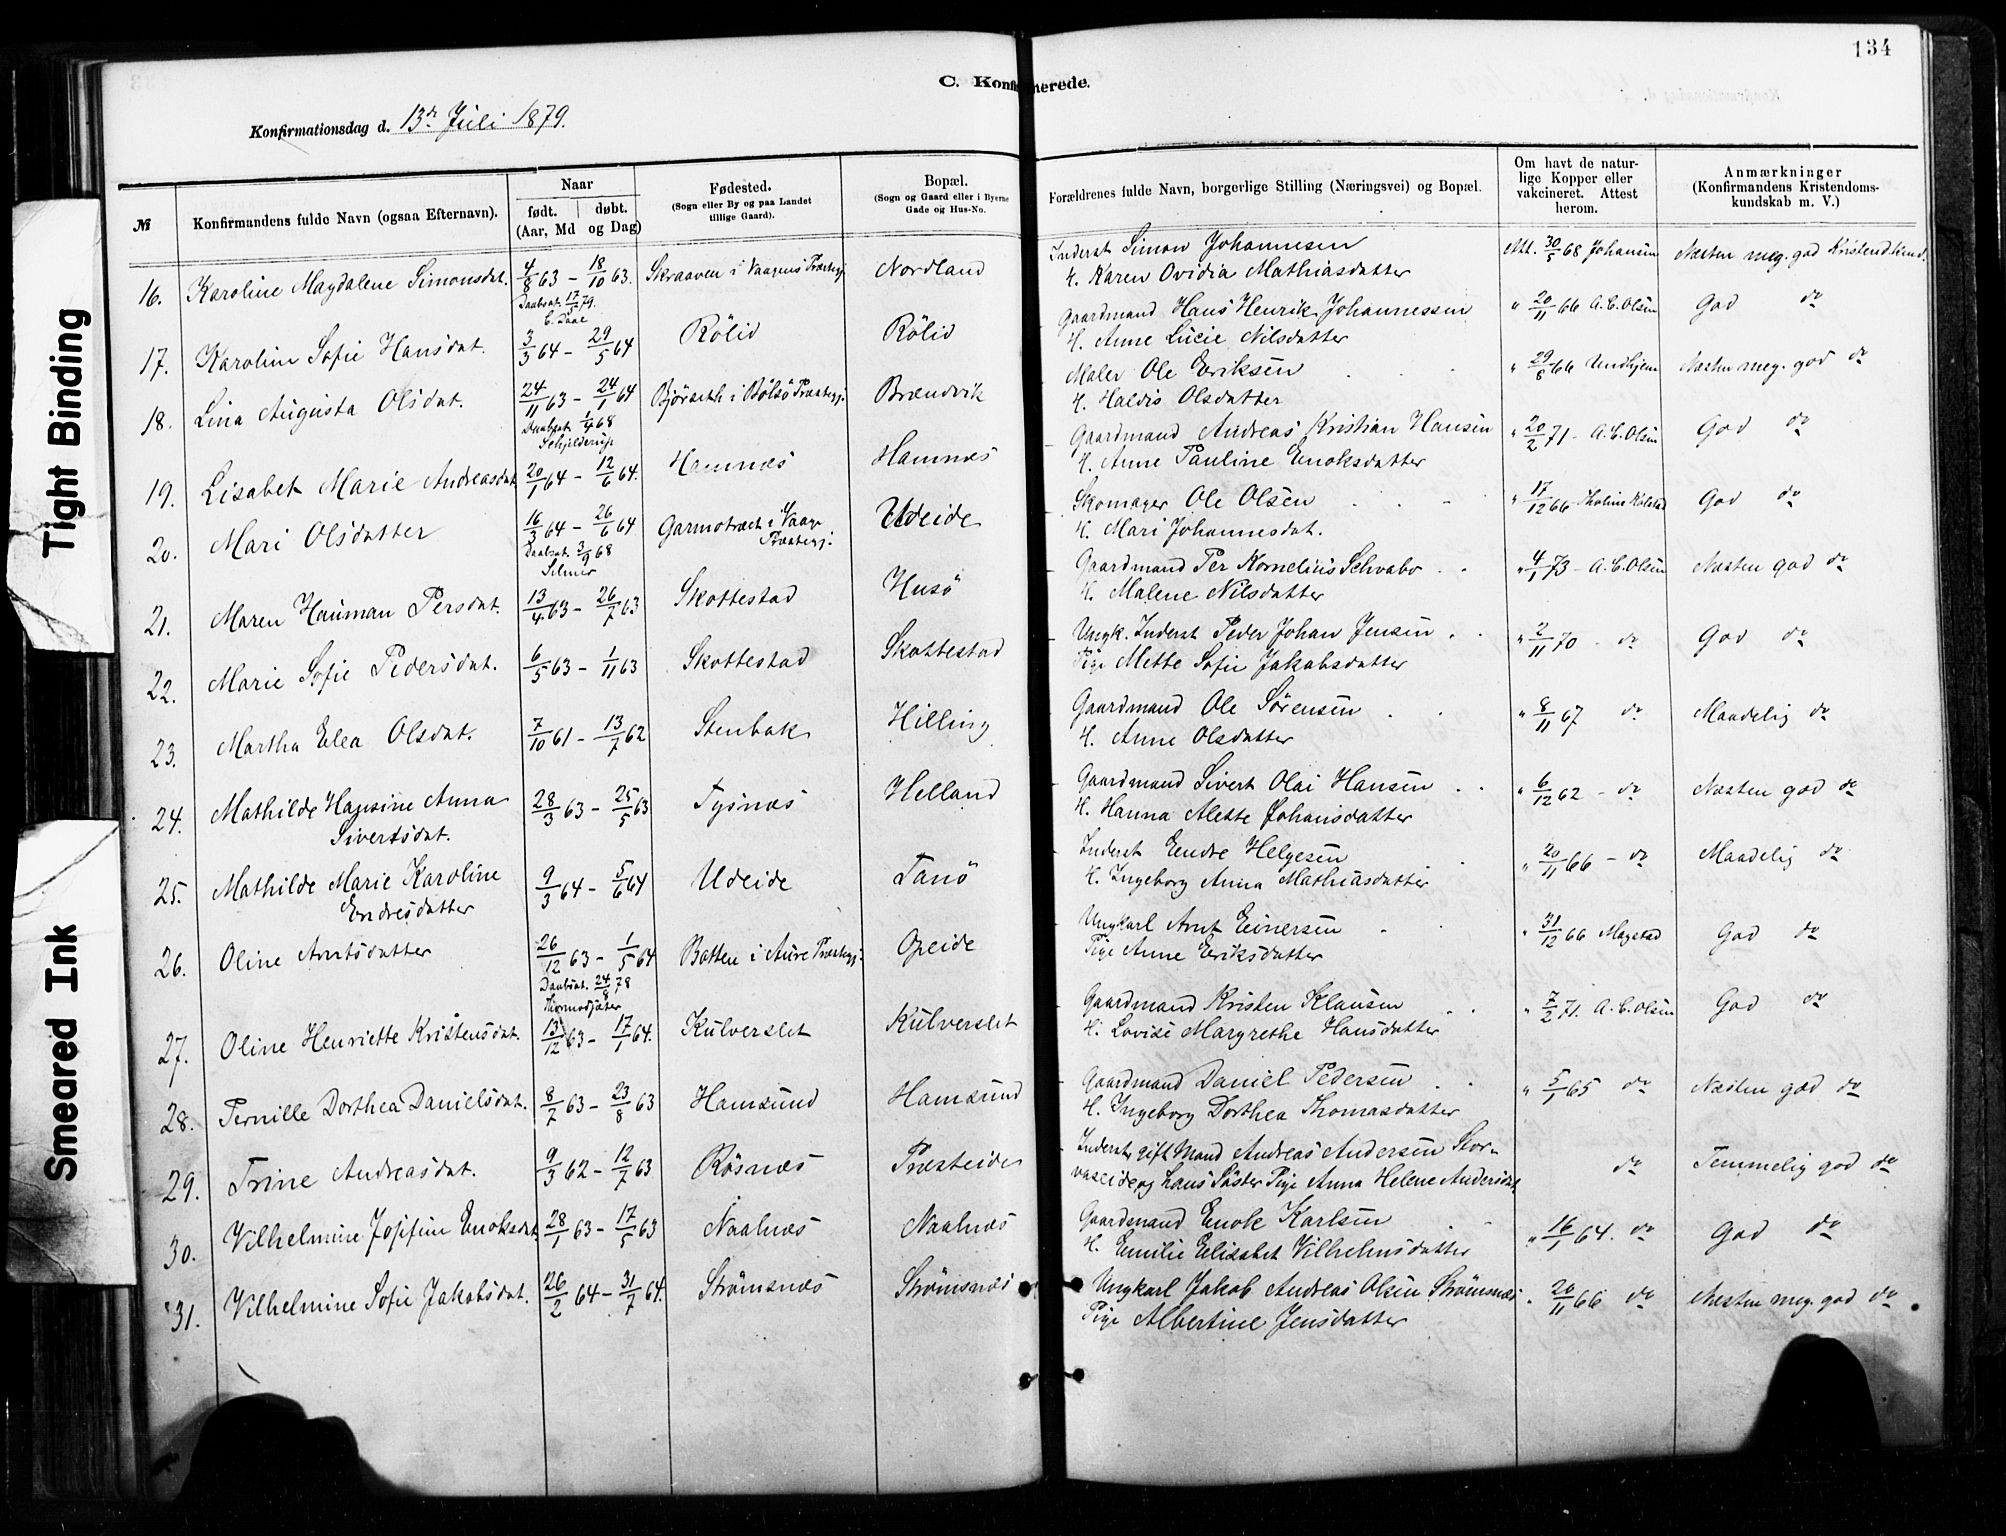 134
C. Konfirmerede.
Konfirmationsdag d. 13de Juli 1879.
Tight Binding
Smeared Ink
№ | Konfirmandens fulde Navn (ogsaa Efternavn). | Naar født. døbt. (Aar, Md og Dag) | Fødested. (Sogn eller By og paa Landet tillige Gaard). | Bopæl. (Sogn og Gaard eller i Byerne Gade og Hus-No. | Forældrenes fulde Navn, borgerlige Stilling (Næringsvei) og Bopæl. | Om havt de naturlige Kopper eller vakcineret. Attest herom. | Anmærkninger (Konfirmandens Kristendomskundskab m. V.)
16. Karoline Magdalene Simonsdat. 4/8 63 – 18/10 63. Skraaven i Vaagens Præstegj. Nordland Inderst Simon Johannesen Att. 30/5 68 Johansen Næsten meg. god Kristend.kund.
Daabsat. 17/5 79. H. Karen Ovidia Mathiasdatter
17. Karoline Sofie Hansdat. 3/3 64 – 29/5 64 Rölid Rölid Gaardmand Hans Henrik Johannessen " 20/11 66 A.C. Olsen God do
H. Anne Lucie Nilsdatter
18. Lina Augusta Olsdat. 24/11 63 – 24/1 64 Björseth i Bolsö Præstegj. Brændvik Maler Ole Eriksen " 29/8 66 Undhjem Næsten meg. god do
Daabsat. 1/4 68 Schjelderup H. Haldis Olsdatter
19. Lisabet Marie Andreasdat. 20/1 64 – 12/6 64. Hamnæs Hamnæs Gaardmand Andreas Kristian Hansen " 20/2 71 – A.C. Olsen God do
H. Anne Pauline Enoksdatter
20. Mari Olsdatter 16/3 64 – 26/6 64 Garmotræet i Vaage Præstegj. Udeide Skomager Ole Olsen " 17/12 66 – Tholine Kolstad God do
Daabsat. 3/9 68 H. Mari Johannesdat.
21. Maren Hauman Persdat. 13/4 63 – 26/7 63 Skottestad Husö Gaardmand Per Kornelius Schvabo " 4/1 73 – A.C. Olsen Næsten god do
H. Malene Nilsdatter
22. Marie Sofie Pedersdat. 6/5 63 – 1/11 63 Skottestad Skottestad Ungk. Inderst Peder Johan Jensen " 2/11 70 – do God do
Pige Mette Sofie Jakobsdatter
23. Martha Elea Olsdat. 7/10 61 – 13/7 62 Stenbak Hilling Gaardmand Ole Sørensen " 8/11 67 do Maadelig do
H. Anne Olsdatter
24. Mathilde Hansine Anna 28/3 63 – 25/5 63 Tysnæs Helland Gaardmand Sivert Olai Hansen " 6/12 62 – do Næsten god do
Sivertsdat. H. Hanna Alette Johansdatter
25. Mathilde Marie Karoline 9/3 64 – 5/6 64 Udeide Tanö Inderst Endre Helgesen " 20/11 66 – do Maadelig do
Endresdatter H. Ingeborg Anna Mathiasdatter
26. Oline Arntsdatter 26/12 63 – 1/5 64 Botten i Aure Præstegj. Opeide Ungkarl Arnt Einersen " 31/12 66 Mogstad God do
Daabsat. 24/8 78 Pige Anne Eriksdatter
27. Oline Henriette Kristensdat. 13/12 63 – 17/1 64. Kulverslet Kulverslet Gaardmand Kristen Klausen " 7/2 71. A.C. Olsen God do
H. Lovise Margrethe Hansdatter
28. Pernille Dorthea Danielsdat. 8/7 63 – 23/8 63 Hamsund Hamsund Gaardmand Daniel Pedersen " 5/1 65 do Næsten god do
H. Ingeborg Dorthea Thomasdatter
29. Trine Andreasdat. 9/3 62 – 12/7 63 Rösnæs Præsteide Inderst, gift Mand Andreas Andersen Stor- do Temmelig god do
vaseide og hans Søster Pige Anna Helene Andersdat.
30. Vilhelmine Josefine Enoksdat. 28/1 63 – 17/5 63 Naalnæs Naalnæs Gaardmand Enok Karlsen " 16/1 64. do God do
H. Emilie Elisabet Vilhelmsdatter
31. Vilhelmine Sofie Jakobsdat. 26/2 64 – 31/7 64. Strömsnæs Strömsnæs Ungkarl Jakob Andreas Olsen Strömsnæs " 20/11 66 do Næsten meg. god do
Pige Albertine Jensdatter